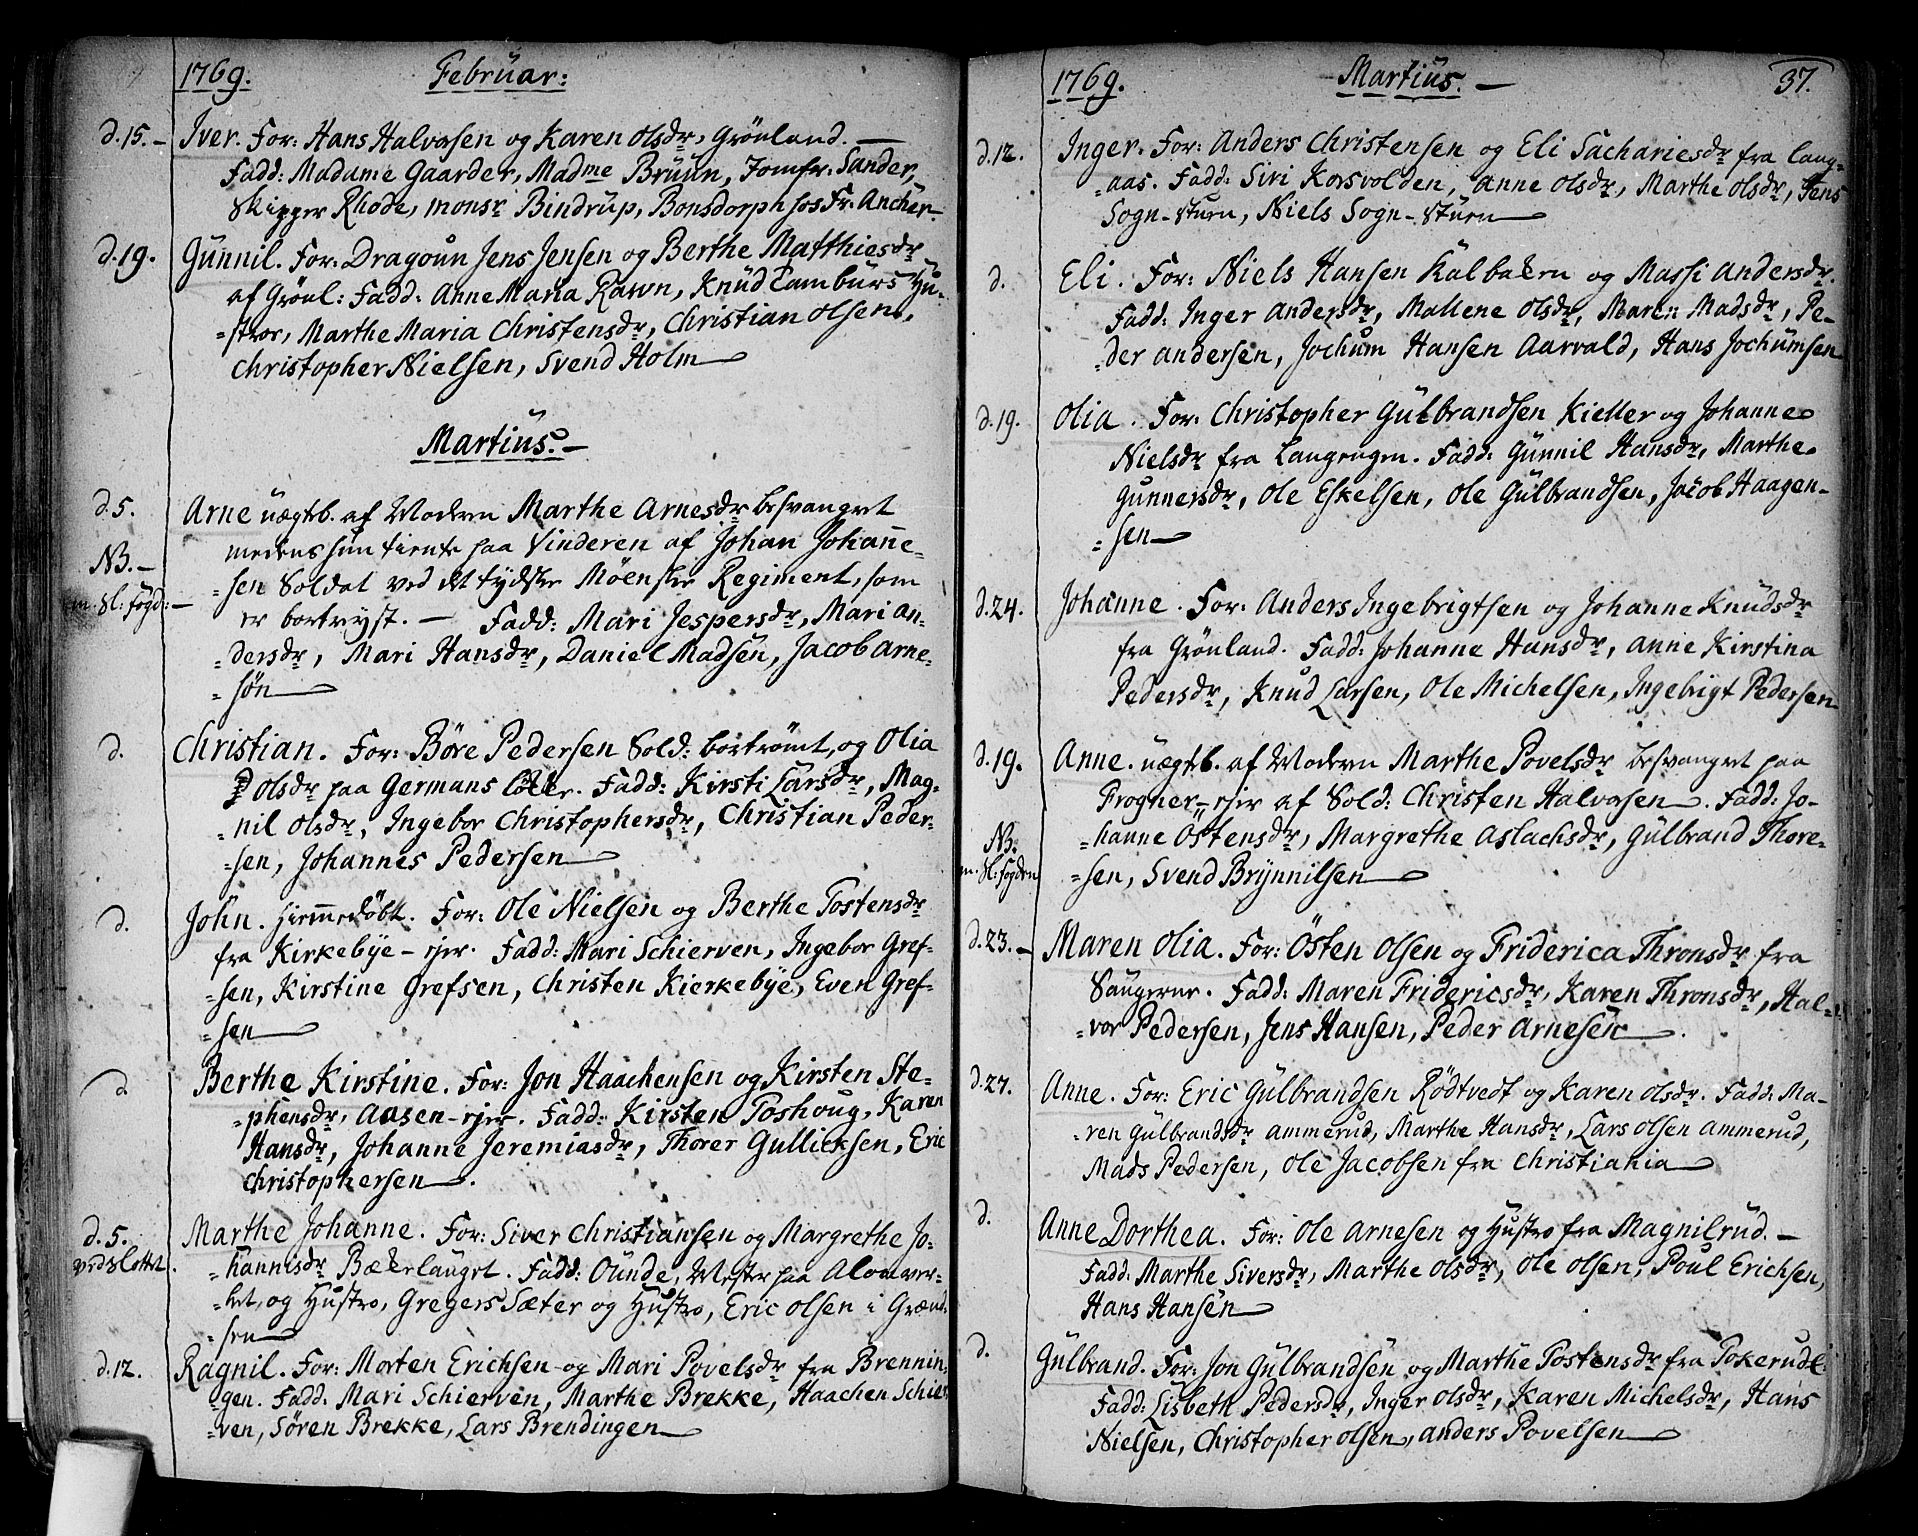 1769. Februar:
d.15. - Iver. For: Hans Halvorsen og Karen Olsdr, Grönland. -
Fadd: Madame Gaarder, Madme Bruun, Jomfr: Sander,
Skipper Rhode, monsr Bindrup, Bonsdorph hos Fr. Ancher.
d.19. Gunnil. For: Dragoun Jens Jensen og Berthe Matthiesdr
af Grönl: Fadd: Anne Maria Rawn, Knud Tamburs Hu-
-stroe, Marthe Maria Christensdr, Christian Olsen,
Christopher Nielsen, Svend Holm
Martius. -
d.5. Arne uægtb. af Modern Marthe Arnesdr besvangret
medens hun tiente paa Vinderen af Johan Johanne-
NB. -
-sen Soldat ved det tydske Möenske Regiment, som
m. Sl: fogd: -
er bortreyst. - Fadd: Mari Jespersdr, Mari An-
-dersdr, Mari Hansdr, Daniel Madsen, Jacob Arne-
-søn
d. Christian. For: Böre Pedersen Sold: bortrömt, og Olia
Olsdr paa Germans Löcker. Fadd: Kirsti Larsdr, Mag-
-nil Olsdr, Ingebor Christophersdr, Christian Peder-
-sen, Johannes Pedersen
d. John. hiemedöbt. For: Ole Nielsen og Berthe Tostensdr
fra Kirkebye-ejer. Fadd: Mari Schierven, Ingebor Gref-
-sen, Kirstine Grefsen, Christen Kierkebye, Even Gref-
-sen
d. Berthe Kirstine. For: Jon Haachensen og Kirsten Ste-
-phensdr, Aasen-ejer. Fadd: Kirsten Toshoug, Karen
Hansdr, Johanne Jeremiasdr, Thorer Gullicksen, Eric
Christophersen.
d.5. Marthe Johanne. For: Siver Christiansen og Margrethe Jo-
ved Slottet.
-hannisdr Bækerlauget. Fadd: Ounde, Mester paa Alonver-
-ket, og Hustro, Gregers Sæter og Hustro, Eric Olsen i Grænd-
-sen
d.12. Ragnil. For: Morten Erichsen og Mari Povelsdr fra Brennin-
-gen. Fadd: Mari Schierven, Marthe Brekke, Haachen Schier-
-ven, Sören Brekke, Lars Brendingen
1769. Martius. - 37.
d.12. Inger. For: Anders Christensen og Eli Sachariesdr fra Lang-
-aas. Fadd: Siri Korsvolden, Anne Olsdr, Marthe Olsdr, Jens
Sogn-stuen, Niels Sogn-stuen
d. Eli. For: Niels Hansen Kalbakken og Massi Andersdr.
Fadd: Inger Andersdr, Mallene Olsdr, Maren Madsdr, Pe-
-der Andersen, Jochum Hansen Aarvald, Hans Jochumsen
d.19. Olia. For: Christopher Gulbrandsen Kieller og Johanne
Nielsdr fra Langengen. Fadd: Gunnil Hansdr, Marthe
Gunnersdr, Ole Eskelsen, Ole Gulbrandsen, Jacob Haagen-
-sen
d.24. Johanne. For: Anders Ingebrigtsen og Johanne Knudsdr
fra Grönland. Fadd: Johanne Hansdr, Anne Kirstina
Pedersdr, Knud Larsen, Ole Michelsen, Ingebrigt Pedersen
d.19. Anne. uægtb. af Modern Marthe Povelsdr besvangret paa
Frogner-ejer af Sold: Christen Halvorsen. Fadd: Jo-
-hanne Östensdr, Margrethe Aslachsdr, Gulbrand Thore-
NB.
m. Sl: fogden
-sen, Svend Brynnilsen
d.23. - Maren Olia. For: Östen Olsen og Friderica Thronsdr fra
Saugerne. Fadd: Maren Fridericsdr, Karen Thronsdr, Hal-
-vor Pedersen, Jens Hansen, Peder Arnesen
d.27. Anne. For: Eric Gulbrandsen Rödtvedt og Karen Olsdr. Fadd: Ma-
-ren Gulbrandsdr Ammerud, Marthe Hansdr, Lars Olsen Ammerud,
Mads Pedersen, Ole Jacobsen fra Christiania
d. Anne Dorthea. For: Ole Arnesen og Hustro fra Magnilrud. -
Fadd: Marthe Siversdr, Marthe Olsdr, Ole Olsen, Poul Erichsen,
Hans Hansen
d. Gulbrand. For: Jon Gulbrandsen og Marthe Tostensdr fra Tokerud.
Fadd: Lisbeth Pedersdr, Inger Olsdr, Karen Michelsdr, Hans
Nielsen, Christopher Olsen, Anders Povelsen